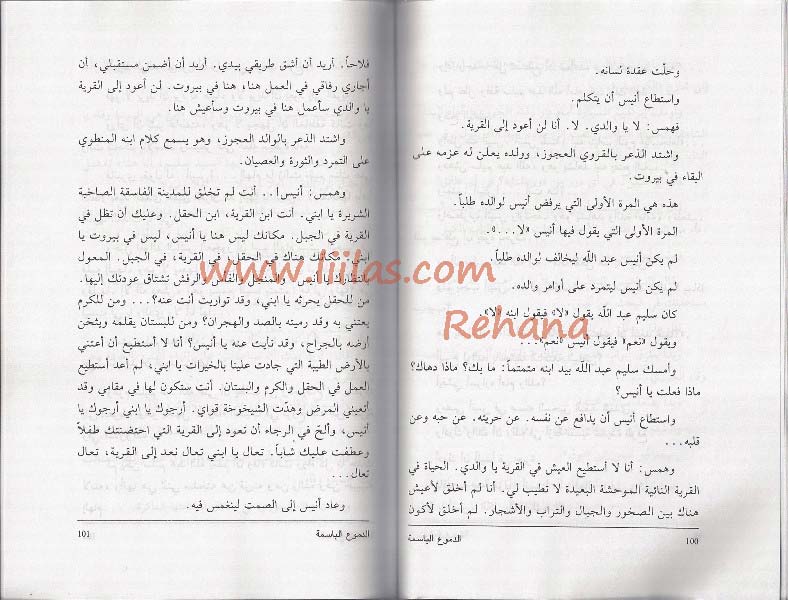 وحلّت عقدة لسانه.
واستطاع أنيس أن يتكلم.
فهمس: لا يا والدي. لا. أنا لن أعود إلى القرية.
واشتد الذعر بالقروي العجوز، وولده يعلن له عزمه على
البقاء في بيروت.
هذه هي المرة الأولى التي يرفض أنيس لوالده طلباً.
المرة الأولى التي يقول فيها أنيس «لا...».
لم يكن أنيس عبد اللّه ليخالف لوالده طلباً.
لم يكن أنيس ليتمرد على أوامر والده.
كان سليم عبد اللّه يقول «لا» فيقول ابنه «لا».
ويقول «نعم» فيقول أنيس «نعم»...
وأمسك سليم عبد اللّه بيد ابنه متمتماً: ما بك؟ ماذا دهاك؟
ماذا فعلت يا أنيس؟
واستطاع أنيس أن يدافع عن نفسه. عن حريته. عن حبه وعن
قلبه...
وهمس: أنا لا أستطيع العيش في القرية يا والدي. الحياة في
القرية النائية الموحشة البعيدة لا تطيب لي. أنا لم أخلق لأعيش
هناك بين الصخور والجبال والتراب والأشجار. لم أخلق لأكون
100
الدموع الباسمة
فلاحاً. أريد أن أشق طريقي بيدي. أريد أن أضمن مستقبلي، أن
أجاري رفاقي في العمل هنا، هنا في بيروت. لن أعود إلى القرية
يا والدي سأعمل هنا في بيروت وسأعيش هنا.
واشتد الذعر بالوالد العجوز، وهو يسمع كلام ابنه المنطوي
على التمرد والثورة والعصيان.
وهمس: أنيس!.. أنت لم تخلق للمدينة الفاسقة الصاخبة
الشريرة يا ابني. أنت ابن القرية، ابن الحقل. وعليك أن تظل في
القرية في الجبل. مكانك ليس هنا يا أنيس، ليس في بيروت يا
ابني. مكانك هناك في الحقل، في القرية، في الجبل. المعول
بانتظارك يا أنيس. والمنجل والفأس والرفش تشتاق عودتك إليها.
من للحقل يحرثه يا ابني، وقد تواريت أنت عنه؟... ومن للكرم
يعتني به وقد رميته بالصد والهجران؟ ومن للبستان يقلمه ويثخن
أرضه بالجراح، وقد نأيت عنه يا أنيس؟ أنا لا أستطيع أن أعتني
بالأرض الطيبة التي جادت علينا بالخيرات يا ابني، لم أعد أستطيع
العمل في الحقل والكرم والبستان. أنت ستكون لها في مقامي وقد
أتعبني المرض وهدّت الشيخوخة قواي. أرجوك يا ابني أرجوك يا
أنيس، وألحّ في الرجاء أن تعود إلى القرية التي احتضنتك طفلاً
وعطفت عليك شاباً. تعال يا ابني تعال نعد إلى القرية، تعال
تعال...
وعاد أنيس إلى الصمت لينغمس فيه.
الدموع الباسمة
101
www.liilas.com
Rehana